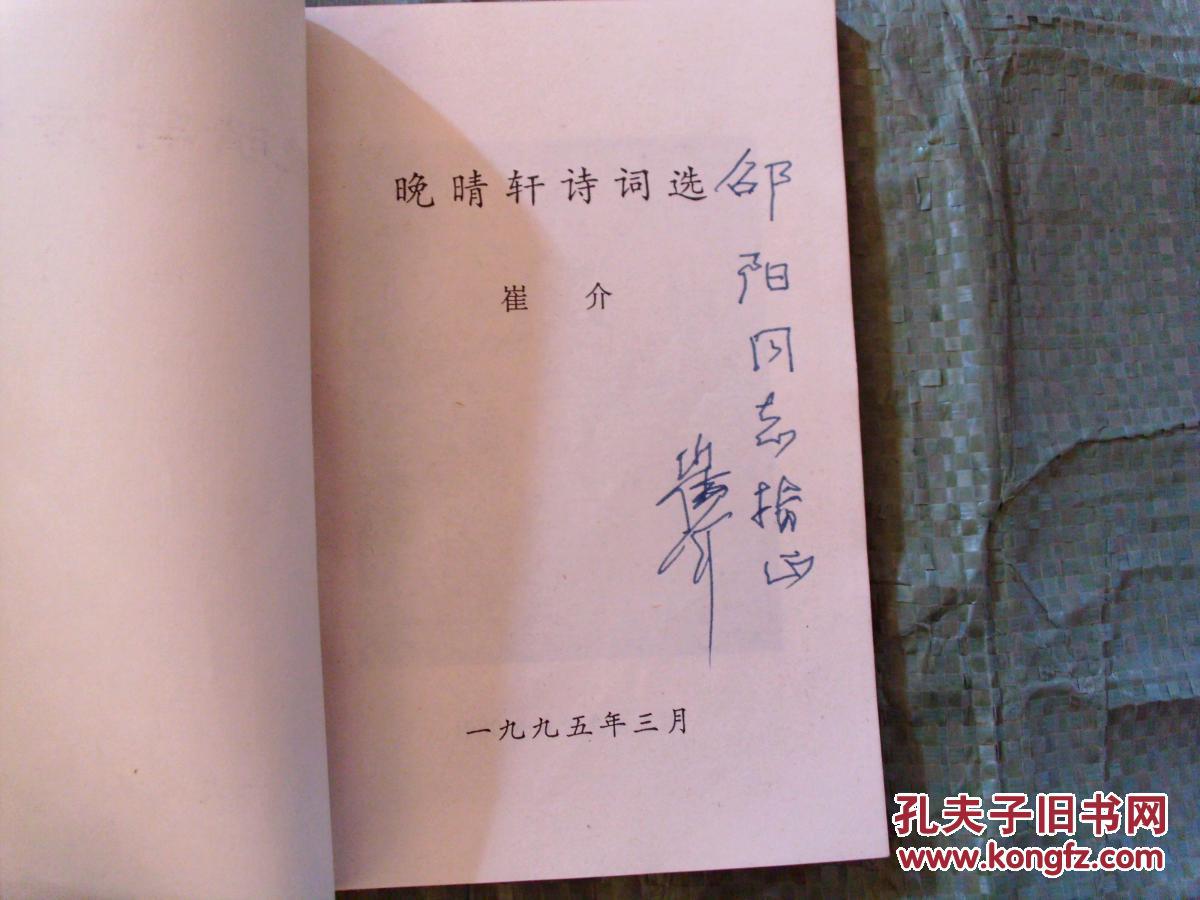 晚晴轩诗词选
崔介
邰阳同志指正
崔介
一九九五年三月
孔夫子旧书网
www.kongfz.com